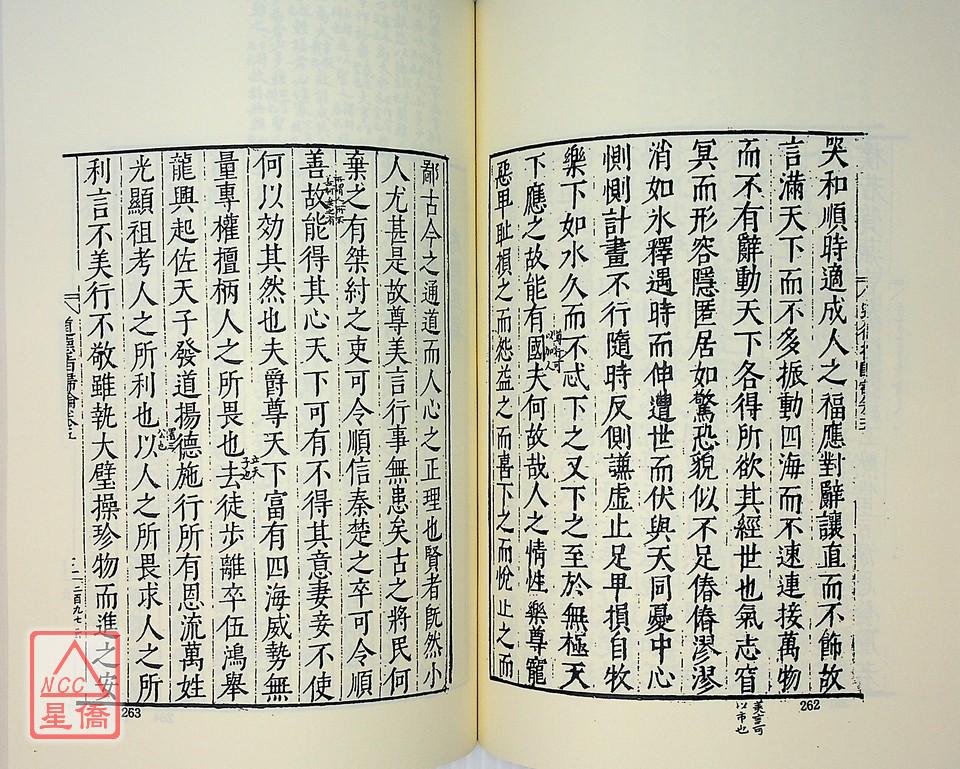 哭和順時適成人之福應對辭讓直而不飾故
言滿天下而不多振動四海而不速連接萬物
而不有辭動天下各得所欲其經世也氣志窅
冥而形容隱匿居如驚恐貌似不足偆偆漻漻
消如氷釋遇時而伸遭世而伏與天同憂中心
惻惻計畫不行隨時反側謙虛止足卑損自牧
樂下如水久而不忒下之又下之至於無極天
下應之故能有國夫何故哉人之情性樂尊寵
惡卑恥損之而怨益之而喜下之而悅止之而
美言可
以市也
262
鄙古今之通道而人心之正理也賢者旣然小
人尤甚是故尊美言行事無患矣古之將民何
棄之有桀紂之吏可令順信秦楚之卒可令順
善故能得其心天下可有不得其意妻妾不使
何以効其然也夫爵尊天下富有四海威勢無
量專權擅柄人之所畏也去徒步離卒伍鴻舉
立天
子也
龍興起佐天子發道揚德施行所有恩流萬姓
置三
公也
光顯祖考人之所利也以人之所畏求人之所
利言不美行不敬雖執大璧操珍物而進之安
道德眞經指歸論卷五
二百九七
263
NCC
星僑